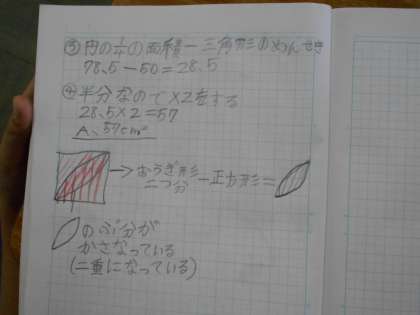 ③円の¼の面積－三角形のめんせき
78.5－50＝28.5
④半分なので×2をする
28.5×2＝57
A、57cm²
→おうぎ形二つ分－正方形＝
のぶ分が
かさなっている
(二重になっている)